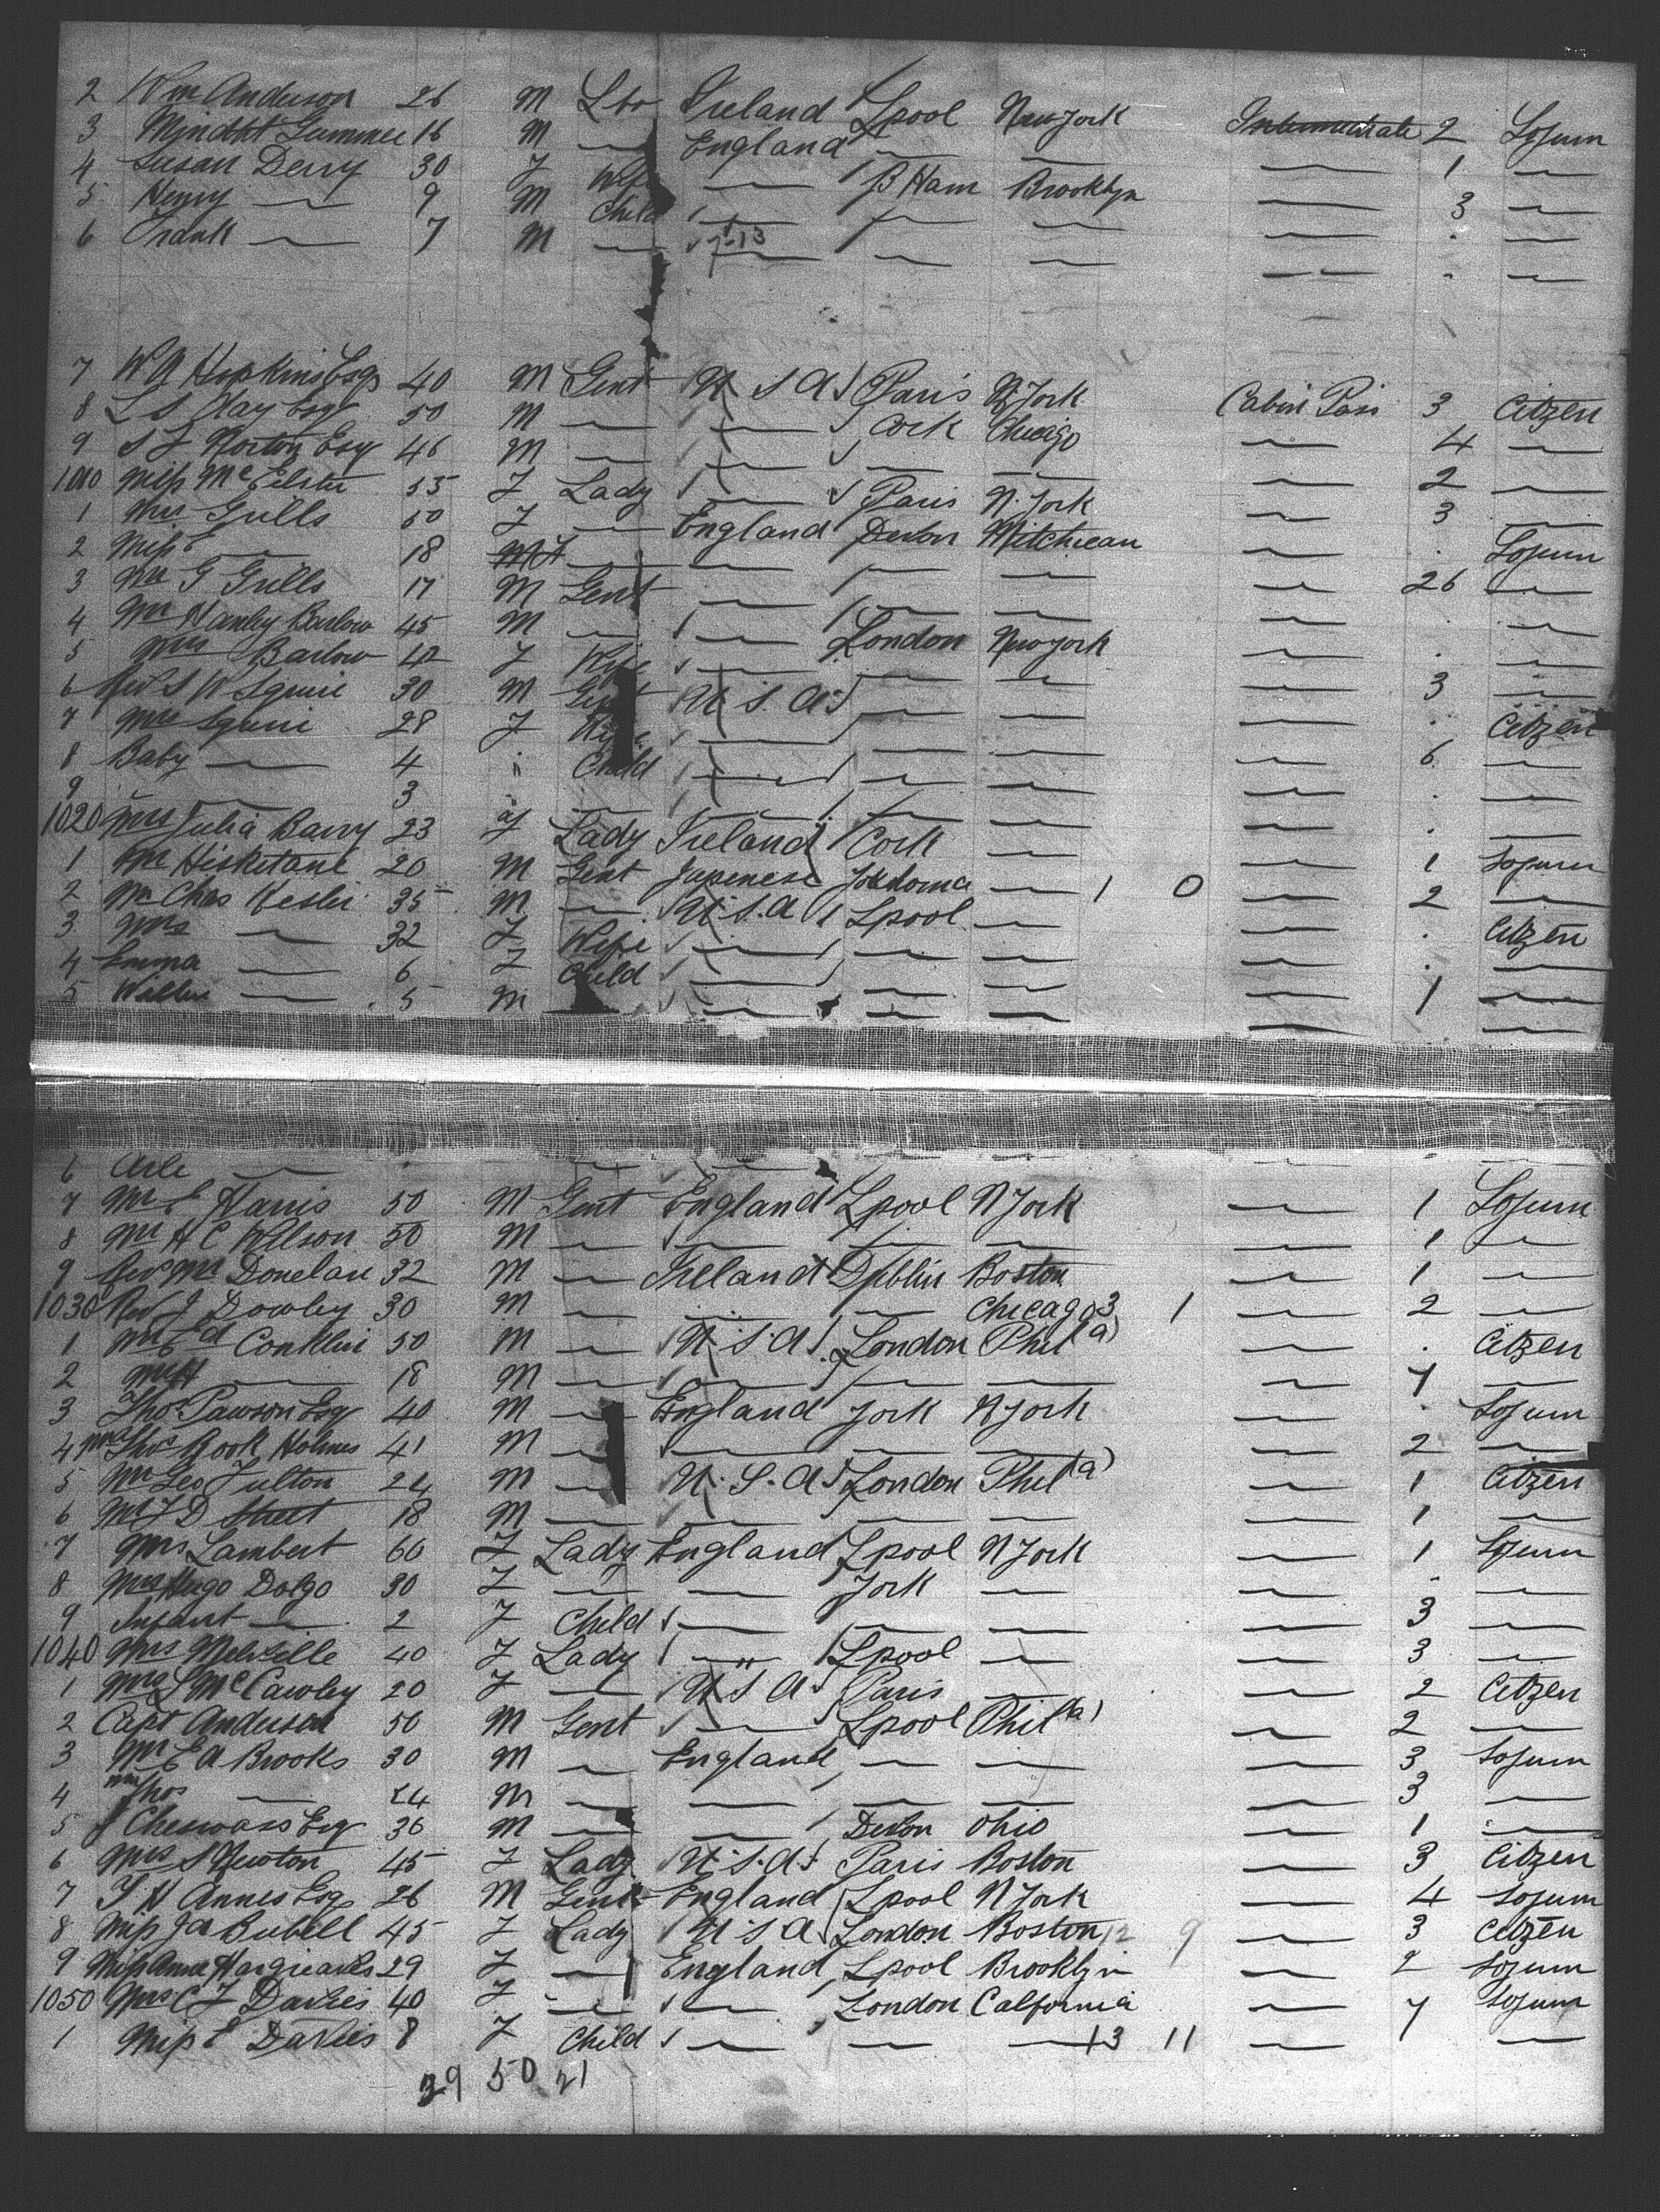 2 Wm Anderson 26 M Lbr Ireland Lpool New York Intermediate 2 Sojurn
3 Gummer 16 M — England — — — 1 —
4 Susan Derry 30 F Wife — B Ham Brooklyn — 3 —
5 Henry — 9 M Child — — — — . —
6 Frank — 7 M — — — — — . —
7 W A Hopkins Esq 40 M Gent U S A Paris N York Cabin Pass 3 Citzen
8 L S Clay Esq 50 M — — Cork Chicago — 4 —
9 S L Norton Esq 46 M — — — — — 2 —
1010 Miss McElster 55 F Lady — Paris N. York — 3 —
1 Mrs Grills 50 F — England Devon Mitchican — . Sojurn
2 Miss E — 18 M F — — — — — 26 —
3 Mr G Grills 17 M Gent — — — — . —
4 Mr Hanley Barlow 45 M — — London New York — . —
5 Mrs Barlow 42 F Wife — — — — 3 —
6 Rev S W Squire 30 M Gent U. S. A. — — — . Citzen
7 Mrs Squire 28 F Wife — — — — 6 —
8 Baby — 4 Child — — — — . —
9 — 3 — — — — — . —
1020 Mrs Julia Barry 23 F Lady Ireland Cork — — 1 Sojurn
1 Mr Hisketane 20 M Gent Japenese — 1 0 — 2 —
2 Mr Chas Kesler 35 M — U. S. A Lpool — — . Citzen
3 Mrs — 32 F Wife — — — — . —
4 Emma — 6 F Child — — — — 1 —
5 — 5 M — — — — — —
6 —
7 Mr E Harris 50 M Gent England Lpool N York — 1 Sojurn
8 Mr H C Wilson 50 M — — — — — 1 —
9 Rev Mr Donelan 32 M — Ireland Dublin Boston — 1 —
1030 Rev J Dowley 30 M — — — Chicago 3 1 — 2 —
1 Mr Ed Conklin 50 M — U. S. A. London Phil(a) — . Citzen
2 — 18 M — — — — — 7 —
3 Thos Pawson Esq 40 M — England York N York — . Sojurn
4 Thos Rook Holmes 41 M — — — — — 2 —
5 Mr Geo Fulton 24 M — U. S. A London Phil(a) — 1 Citzen
6 Mr F D Street 18 M — — — — — 1 —
7 Mrs Lambert 60 F Lady England Lpool N York — 1 Sojurn
8 Mrs Hugo Dolgo 30 F — — York — — . —
9 Infant — 2 F Child — — — — 3 —
1040 Mrs Melville 40 F Lady — " Lpool — — 3 —
1 Mrs L McCawley 20 F — U S A Paris — — 2 Citzen
2 Capt Anderson 50 M Gent — Lpool Phil(a) — 2 —
3 Mr E A Brooks 30 M — England — — — 3 Sojurn
4 Thos — 24 M — — — — — 3 —
5 J Esq 36 M — — Devon Ohio — 1 —
6 Mrs S Newton 45 F Lady U. S. A. Paris Boston — 3 Citzen
7 T H Annes Esq 26 M Gent England Lpool N York — 4 Sojurn
8 Miss Bubell 45 F Lady U S A London Boston 12 9 — 3 Citzen
9 Miss Annie Hargreaves 29 F — England Lpool Brooklyn — 2 Sojurn
1050 Mrs C J Davies 40 F — — London Calfornia — 7 Sojurn
1 Miss E Davies 8 F Child — — — 13 11 — —
29 50 21